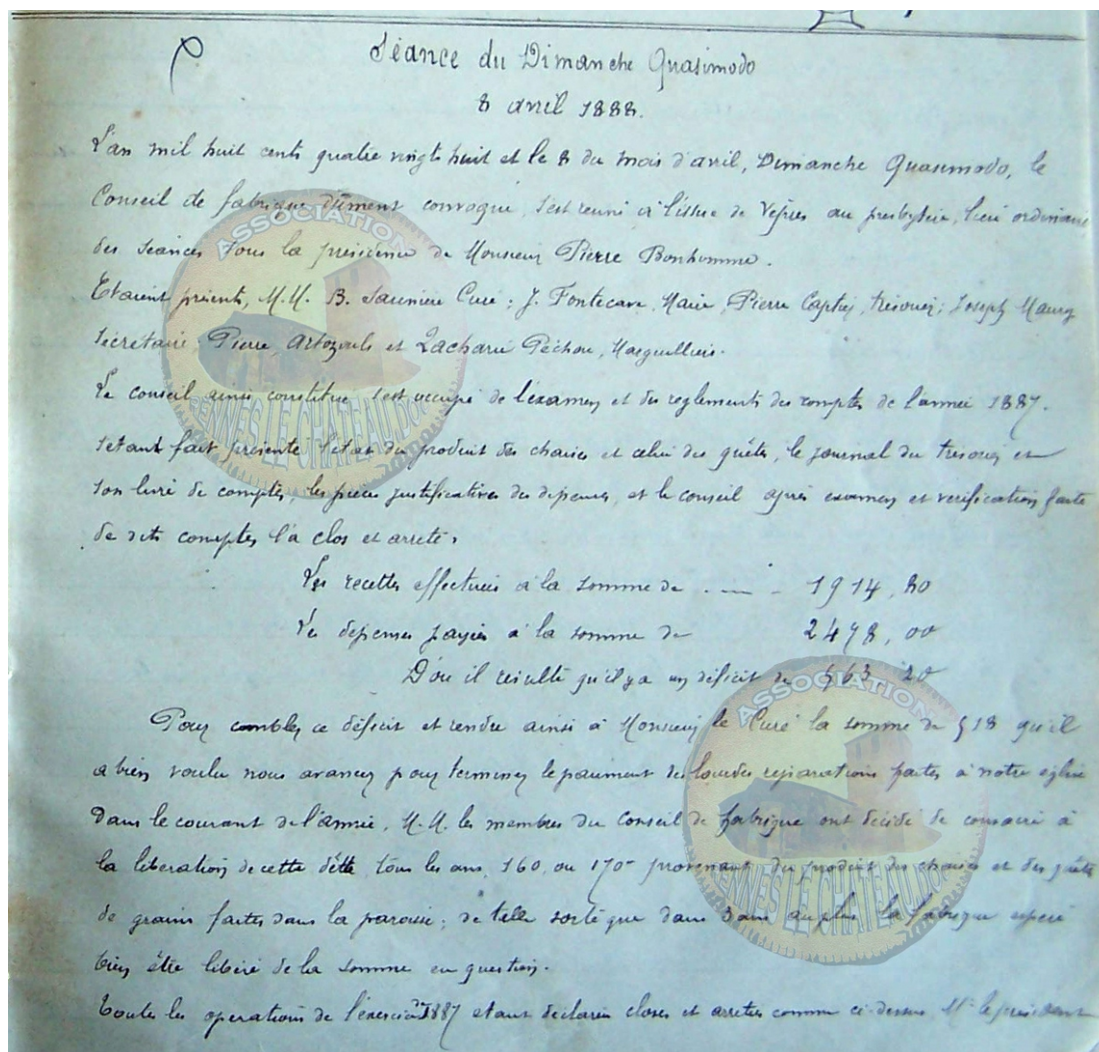 Séance du Dimanche Quasimodo
8 avril 1888.
L'an mil huit cents quatre vingt huit et le 8 du mois d'avril, Dimanche Quasimodo, le
Conseil de fabrique dûment convoqué, s'est reuni à l'issue de Vêpres au presbytère, lieu ordinaire
des séances sous la présidence de Monsieur Pierre Bonhomme.
Etaient présents, M.M. B. Saunière Curé; J. Fontecave, Maire, Pierre Captié, trésorier; Joseph Maury
Secrétaire, Pierre Artozouls et Zacharie Péchou, Marguilliers.
Le conseil ainsi constitué s'est occupé de l'examen et des reglements des comptes de l'année 1887.
S'etant fait présenté l'etat du produit des chaises et celui des quêtes, le journal du trésorier et
son livre de comptes, les pièces justificatives des dépenses, et le conseil après examen et verification faite
de dits comptes l'a clos et arreté.
Les recettes effectuées à la somme de . — - 1914,80
Les depenses payées à la somme de 2478,00
D'ou il résulte qu'il y a un déficit de 563 20
Pour combler ce déficit et rendre ainsi à Monsieur le Curé la somme de 518 qu'il
a bien voulu nous avancer pour terminer le paiement des lourdes réparations faites à notre église
dans le courant de l'année, M.M. les membres du Conseil de fabrique ont décidé de consacré à
la liberation de cette dêtte, tous les ans, 160, ou 170 provenant du produit des chaises et des quêtes
de grains faites dans la paroisse; de telle sorte que dans 3 ans au plus la fabrique espère
bien être libéré de la somme en question.
Toutes les operations de l'exercice 1887 etant déclarées closes et arretées comme ci-dessus Mr le président
ASSOCIATION
RENNES LE CHATEAU DOC
ASSOCIATION
RENNES LE CHATEAU DOC